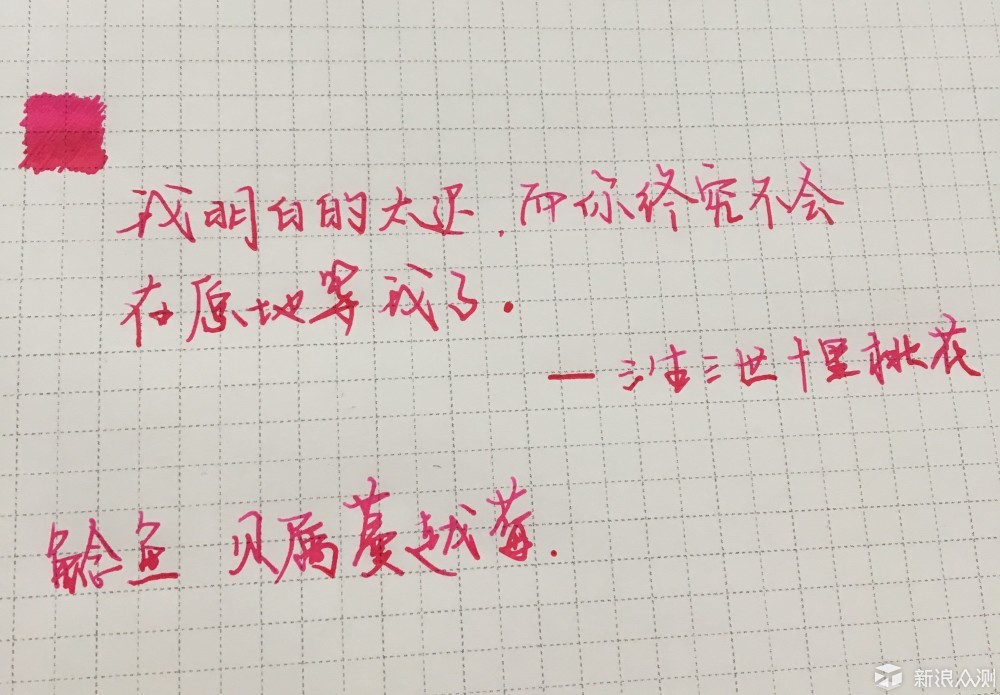 我明白的太迟，而你终究不会
在原地等我了.
— 三生三世十里桃花
鲶鱼 贝属蔓越莓.
新浪众测